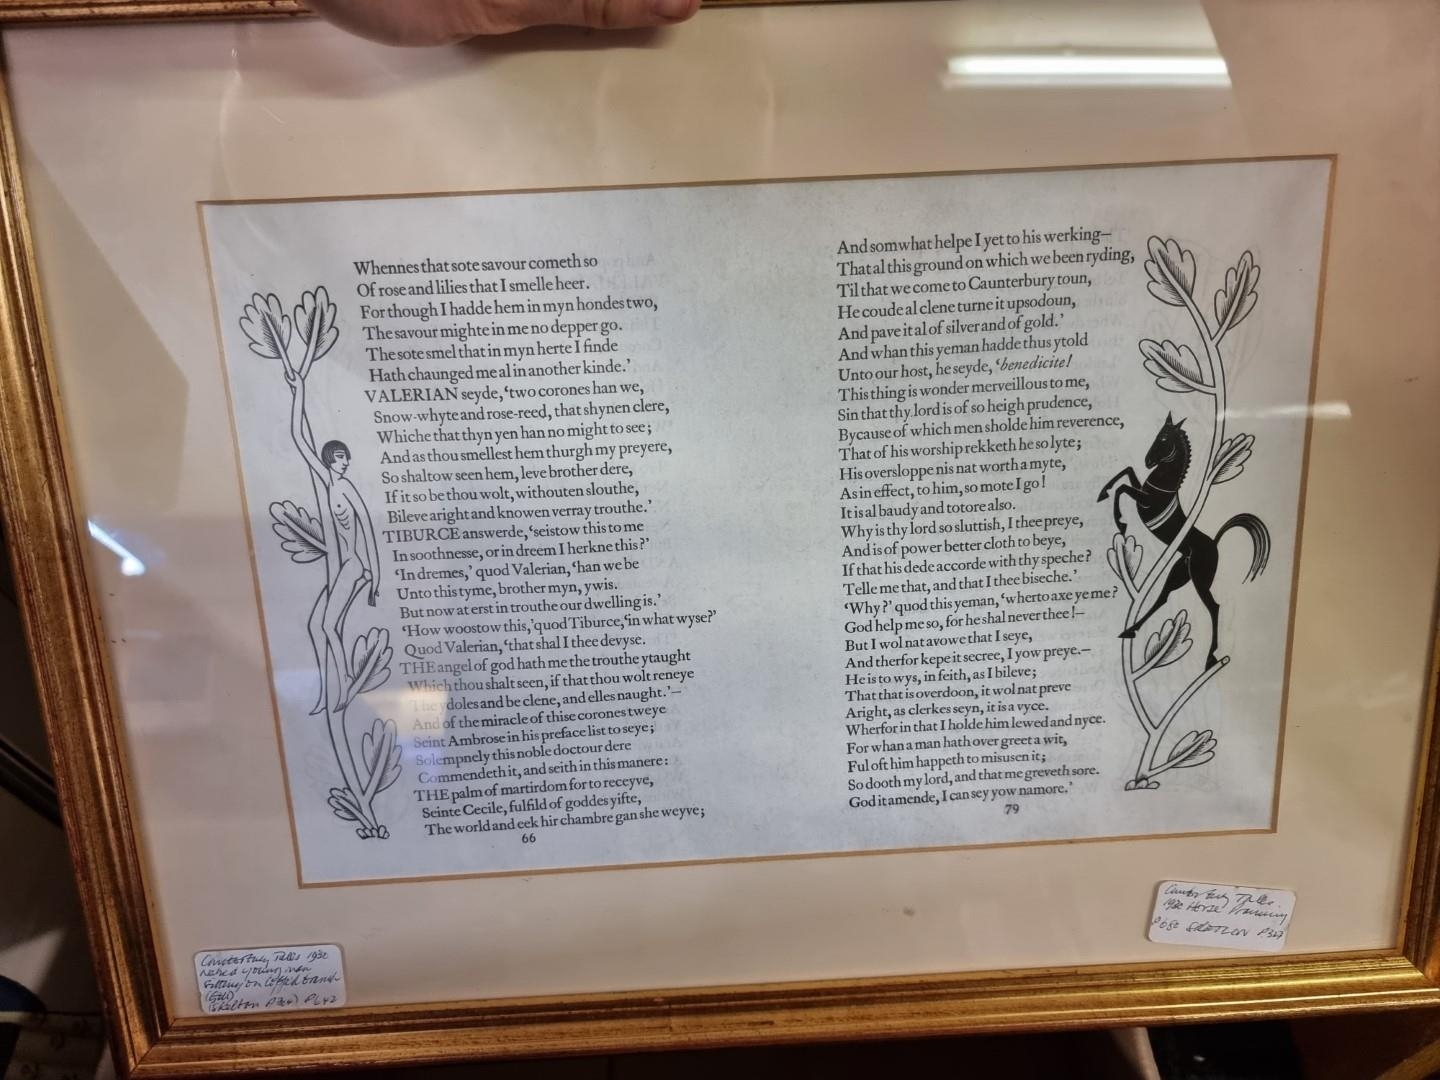 Whennes that sote savour cometh so
Of rose and lilies that I smelle heer.
For though I hadde hem in myn hondes two,
The savour mighte in me no depper go.
The sote smel that in myn herte I finde
Hath chaunged me al in another kinde.'
VALERIAN seyde, 'two corones han we,
Snow-whyte and rose-reed, that shynen clere,
Whiche that thyn yen han no might to see;
And as thou smellest hem thurgh my preyere,
So shaltow seen hem, leve brother dere,
If it so be thou wolt, withouten slouthe,
Bileve aright and knowen verray trouthe.'
TIBURCE answerde, 'seistow this to me
In soothnesse, or in dreem I herkne this?'
'In dremes,' quod Valerian, 'han we be
Unto this tyme, brother myn, ywis.
But now at erst in trouthe our dwelling is.'
'How woostow this,' quod Tiburce, 'in what wyse?'
Quod Valerian, 'that shal I thee devyse.
THE angel of god hath me the trouthe ytaught
Which thou shalt seen, if that thou wolt reneye
The ydoles and be clene, and elles naught.'—
And of the miracle of thise corones tweye
Seint Ambrose in his preface list to seye;
Solempnely this noble doctour dere
Commendeth it, and seith in this manere:
THE palm of martirdom for to receyve,
Seinte Cecile, fulfild of goddes yifte,
The world and eek hir chambre gan she weyve;
66
And somwhat helpe I yet to his werking—
That al this ground on which we been ryding,
Til that we come to Caunterbury toun,
He coude al clene turne it upsodoun,
And pave it al of silver and of gold.'
And whan this yeman hadde thus ytold
Unto our host, he seyde, 'benedicite!
This thing is wonder merveillous to me,
Sin that thy lord is of so heigh prudence,
Bycause of which men sholde him reverence,
That of his worship rekketh he so lyte;
His oversloppe nis nat worth a myte,
As in effect, to him, so mote I go!
It is al baudy and totore also.
Why is thy lord so sluttish, I thee preye,
And is of power better cloth to beye,
If that his dede accorde with thy speche?
Telle me that, and that I thee biseche.'
'Why?' quod this yeman, 'wherto axe ye me?
God help me so, for he shal never thee!—
But I wol nat avowe that I seye,
And therfor kepe it secree, I yow preye.—
He is to wys, in feith, as I bileve;
That that is overdoon, it wol nat preve
Aright, as clerkes seyn, it is a vyce.
Wherfor in that I holde him lewed and nyce.
For whan a man hath over greet a wit,
Ful oft him happeth to misusen it;
So dooth my lord, and that me greveth sore.
God it amende, I can sey yow namore.'
79
Canterbury Tales 1932
Naked young man
sitting on lopped branch
(Gill)
(Skelton P364) P642
Canterbury Tales.
Horse Prancing